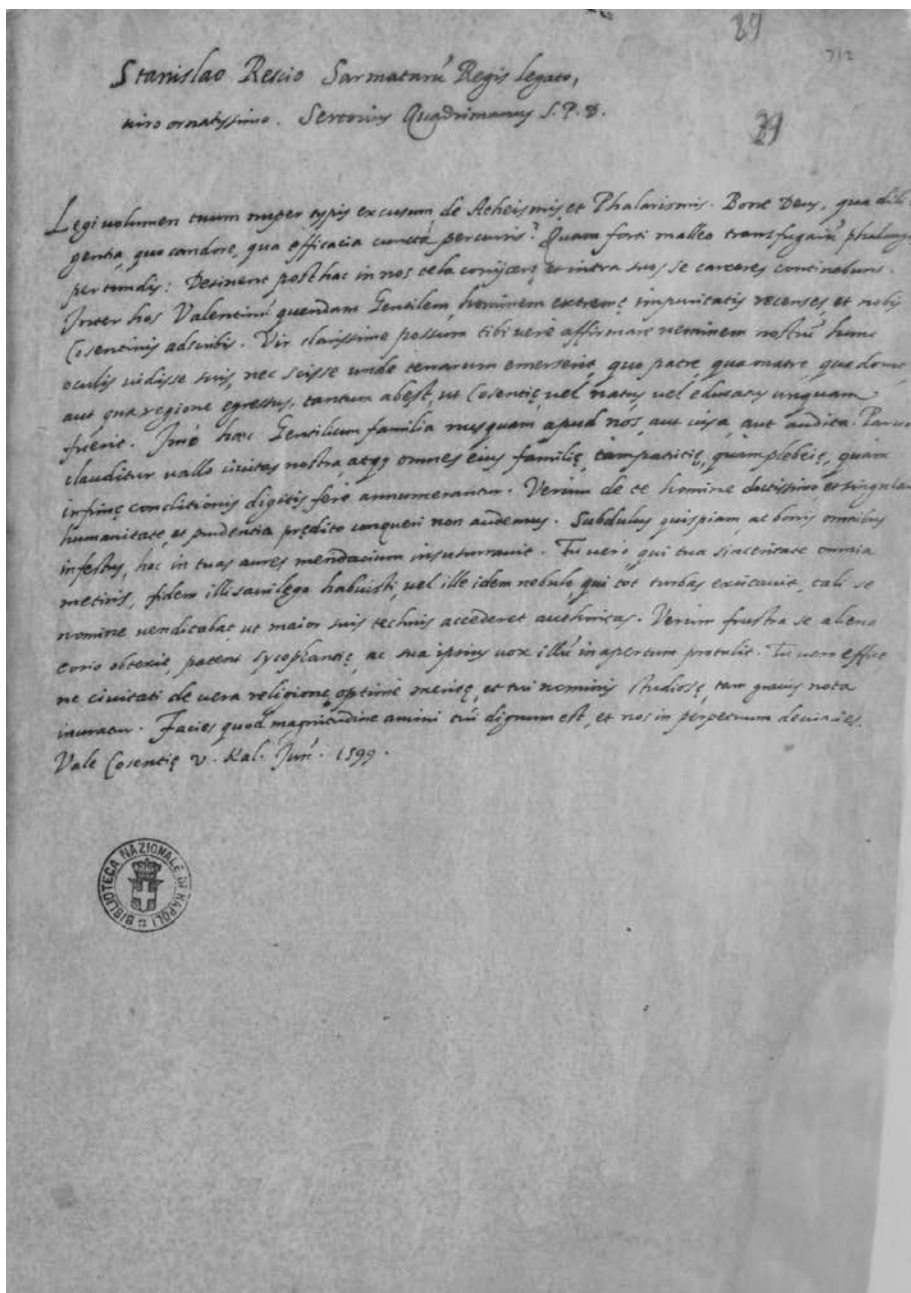 89
312
Stanislao Rescio Sarmatarú Regis Legato,
uiro ornatissimo. Sertorius Quadrimanus S.P.D.
39
Legi uolumen tuum nuper typis excusum de Atheismis et Phalarismis. Bone Deus, qua dili
gentia, quo candore, qua efficacia cuncta percurris? Quam forti malleo transfugarú phalange
pertundis: Desinent posthac in nos tela conijcere, et intra suos se carceres continebunt.
Inter hos Valentinú quendam Gentilem, hominem extremę impuritatis recenses, et nobis
Cosentinis adscribis. Vir clarissime possum tibi uere affirmare neminem nostrú hunc
oculis uidisse suis, nec scisse unde tenarum emerserit, quo patre, qua matre, qua domo,
aut qua regione egressus, tantum abest, ut Cosentię uel natus uel educatus unquam
fuerit. Imó hæc Gentilium familia nusquam apud nos, aut uisa, aut audita. Paruo
clauditur uallo ciuitas nostra, atqʒ omnes eius familię, tam patritię, quam plebeię, quam
infimę conditionis digitis fere annumerantur. Verum de te homine doctissimo, et singulari
humanitate, et prudentia prędito conqueri non audemus. Subdulus quispiam, ac bonis omnibus
infestus, hoc in tuas aures mendacium insusurrauit. Tu uero, qui tua sinceritate omnia
metiris, fidem illi sacrilego habuisti, uel ille idem nebulo, qui tot turbas excitauit, tali se
nomine uenditabat, ut maior suis technis accederet authoritas. Verum frustra se alieno
corio obtexit, patent sycophantię, ac sua ipsius uox illú in apertum protulit. Tu uero effice,
ne ciuitati de uera religione optime meritę, et tui nominis studiosę, tam grauis nota
inuratur. Facies quod magnitudine animi tui dignum est, et nos in perpetuum deuincies.
Vale Cosentię v. Kal. Jun. 1599.
BIBLIOTECA NAZIONALE DI NAPOLI